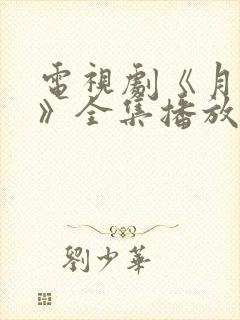 電視劇《月
》全集播放
劉少華